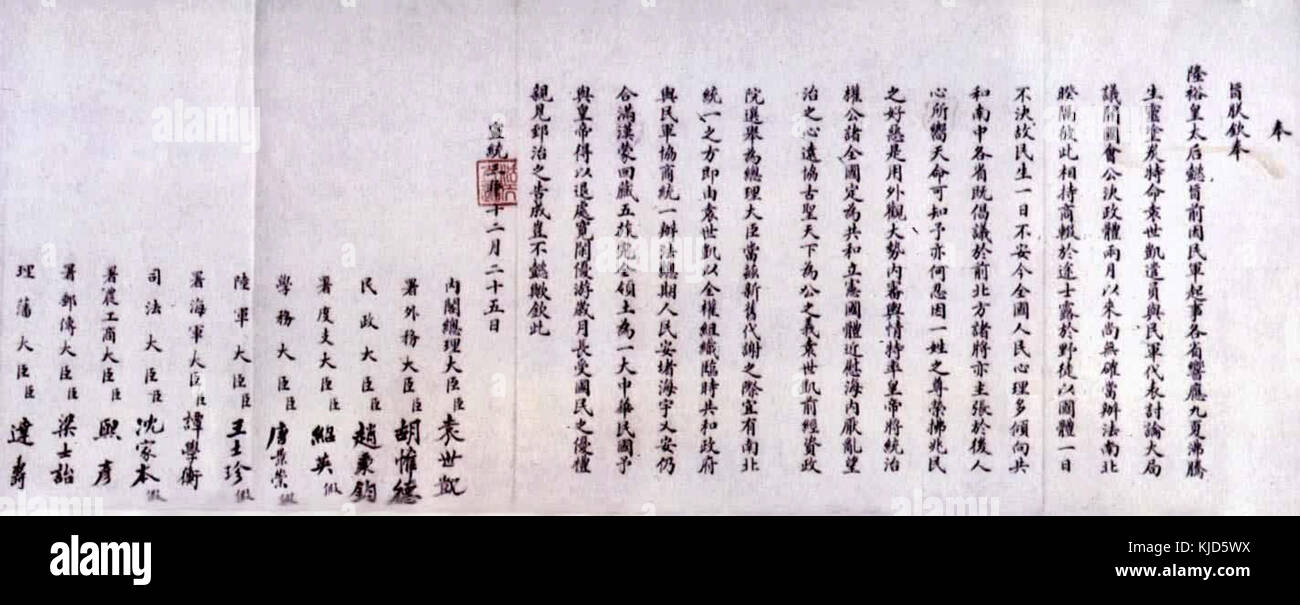 奉
旨朕欽奉
隆裕皇太后懿旨前因民軍起事各省響應九夏沸騰
生靈塗炭特命袁世凱遣員與民軍代表討論大局
議開國會公決政體兩月以來尚無確當辦法南北
暌隔彼此相持商輟於途士露於野徒以國體一日
不決故民生一日不安今全國人民心理多傾向共
和南中各省既倡議於前北方諸將亦主張於後人
心所嚮天命可知予亦何忍因一姓之尊榮拂兆民
之好惡是用外觀大勢內審輿情特率皇帝將統治
權公諸全國定為共和立憲國體近慰海內厭亂望
治之心遠協古聖天下為公之義袁世凱前經資政
院選舉為總理大臣當茲新舊代謝之際宜有南北
統一之方即由袁世凱以全權組織臨時共和政府
與民軍協商統一辦法總期人民安堵海宇乂安仍
合滿漢蒙回藏五族完全領土為一大中華民國予
與皇帝得以退處寬閒優游歲月長受國民之優禮
親見郅治之告成豈不懿歟欽此
宣統三年十二月二十五日
內閣總理大臣臣袁世凱
署外務大臣臣胡惟德
民政大臣臣趙秉鈞
署度支大臣臣紹英假
學務大臣臣唐景崇假
陸軍大臣臣王士珍假
署海軍大臣臣譚學衡
司法大臣臣沈家本假
署農工商大臣臣熙彥
署郵傳大臣臣梁士詒
理藩大臣臣達壽
alamy
alamy
www.alamy.com
Image ID: KJD5WX